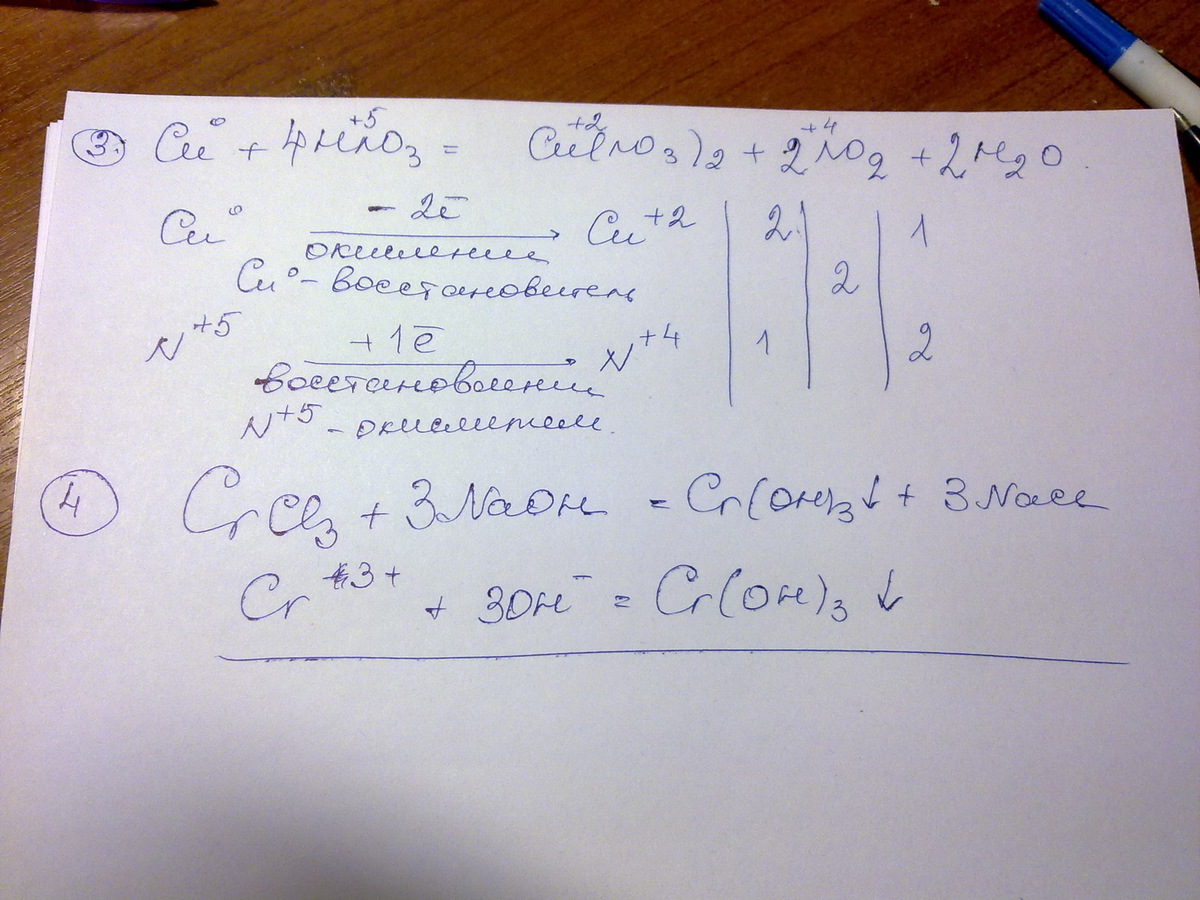 3. Cu⁰ + 4HN⁺⁵O₃ = Cu⁺²(NO₃)₂ + 2N⁺⁴O₂ + 2H₂O.
Cu⁰ - 2ē окисление Cu⁺² | 2 | | 1
Cu⁰ - восстановитель | | 2 |
N⁺⁵ + 1ē восстановление N⁺⁴ | 1 | | 2
N⁺⁵ - окислитель.
4 CrCl₃ + 3NaOH = Cr(OH)₃↓ + 3NaCl
Cr³⁺ + 3OH⁻ = Cr(OH)₃ ↓